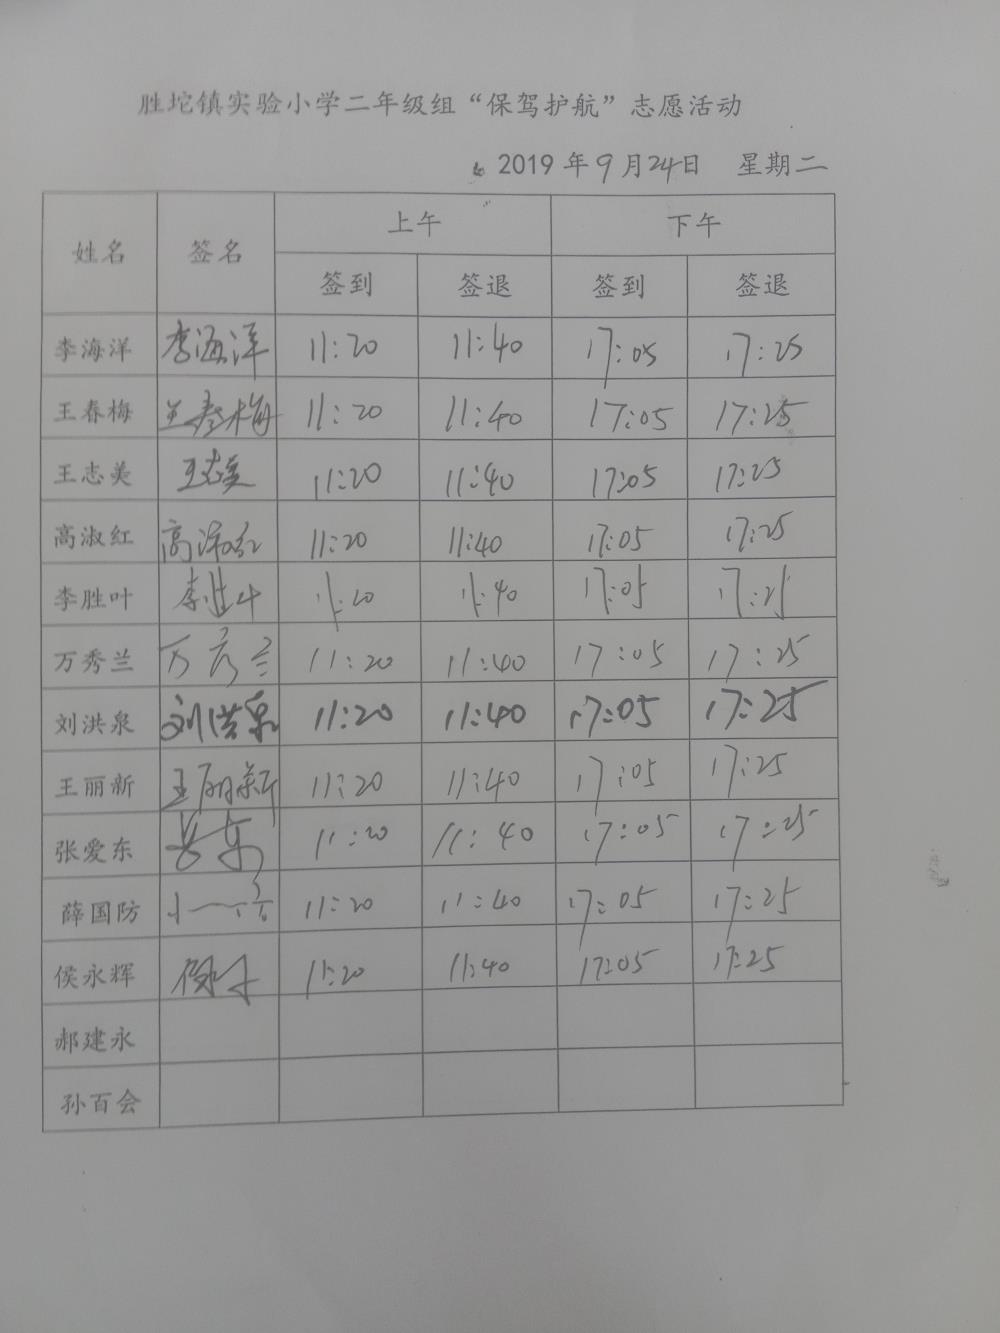 胜坨镇实验小学二年级组“保驾护航”志愿活动
2019年9月24日 星期二
姓名 签名 上午 下午
签到 签退 签到 签退
李海洋 李海洋 11:20 11:40 17:05 17:25
王春梅 王春梅 11:20 11:40 17:05 17:25
王志美 王志美 11:20 11:40 17:05 17:25
高淑红 高淑红 11:20 11:40 17:05 17:25
李胜叶 李胜叶 11:20 11:40 17:05 17:25
万秀兰 万秀兰 11:20 11:40 17:05 17:25
刘洪泉 刘洪泉 11:20 11:40 17:05 17:25
王丽新 王丽新 11:20 11:40 17:05 17:25
张爱东 11:20 11:40 17:05 17:25
薛国防 11:20 11:40 17:05 17:25
侯永辉 11:20 11:40 17:05 17:25
郝建永
孙百会